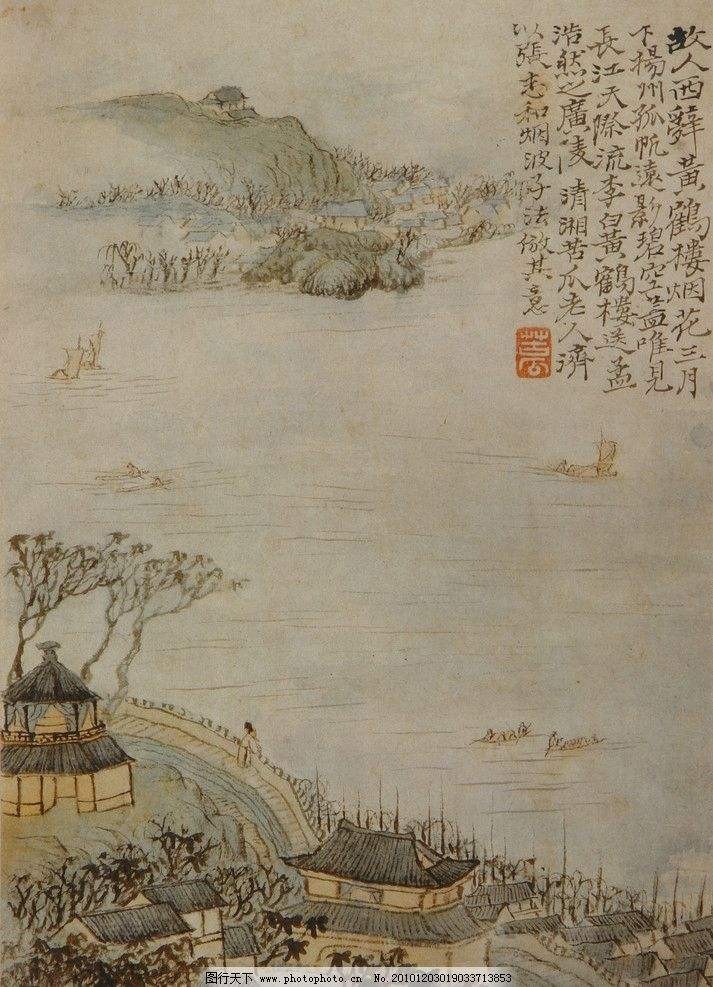 故人西辭黃鶴樓烟花三月
下揚州孤帆遠影碧空盡唯見
長江天際流李白黃鶴樓送孟
浩然之廣陵 清湘苦瓜老人濟
以張志和烟波子法倣其意
图行天下 www.photophoto.cn No.20101203019033713853